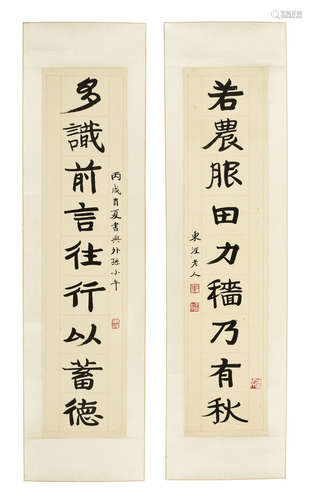 若農服田力穡乃有秋
東老人
多識前言往行以蓄德
丙戌首夏書與外孫小午